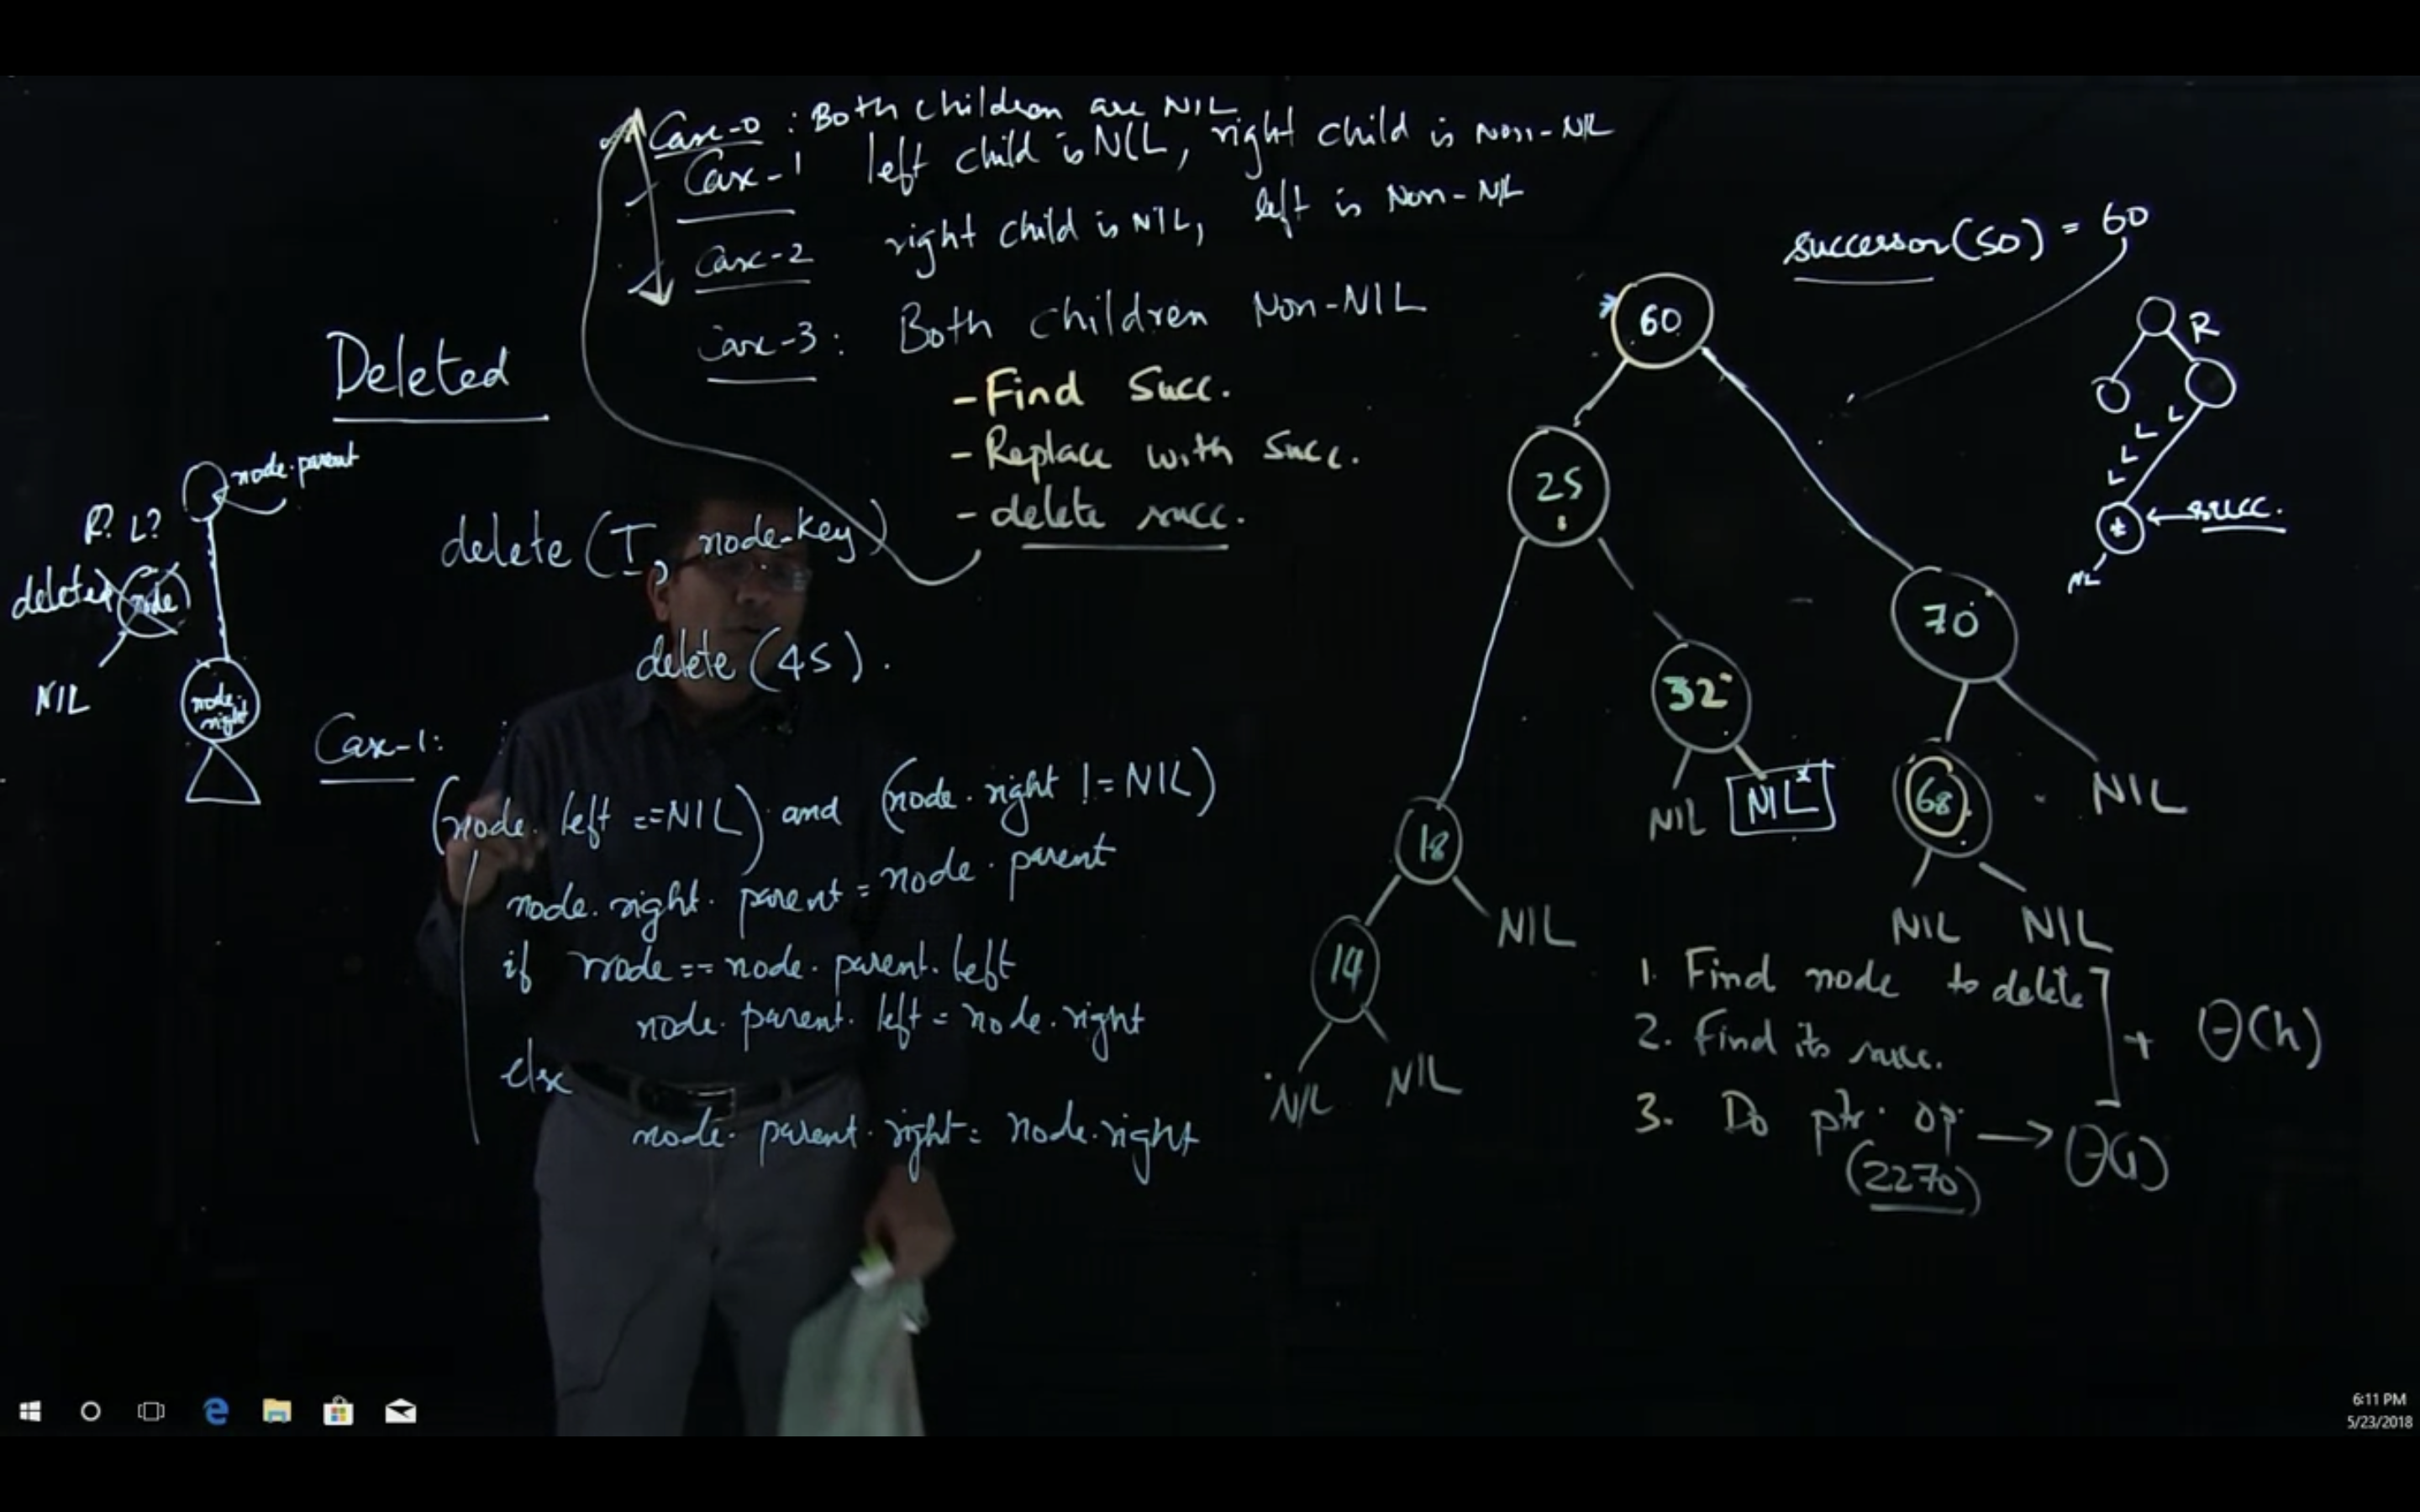 Case-0 : Both children are NIL
Case-1 left child is NIL, right child is Non-NIL
Case-2 right child is NIL, left is Non-NIL
Case-3: Both children Non-NIL
- Find Succ.
- Replace with Succ.
- delete succ.
Deleted
node.parent
R? L?
deleted
node
NIL
node.right
delete (T, node-key)
delete (45).
Case-1:
(node.left ==NIL) and (node.right != NIL)
node.right.parent = node.parent
if node == node.parent.left
node.parent.left = node.right
else
node.parent.right = node.right
successor(50) = 60
60
25
70
32
18
14
68
NIL
NIL
NIL
NIL
NIL
NIL
NIL
NIL
R
L
L
L
L
*
succ.
NIL
1. Find node to delete
2. Find its succ.
+ Θ(h)
3. Do ptr. op → Θ(1)
(2270)
6:11 PM
5/23/2018